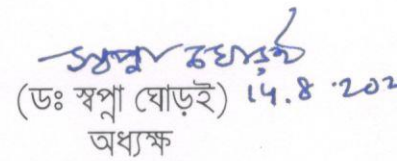 স্বপ্না ঘোড়ই
(ডঃ স্বপ্না ঘোড়ই) 14.8.202
অধ্যক্ষ